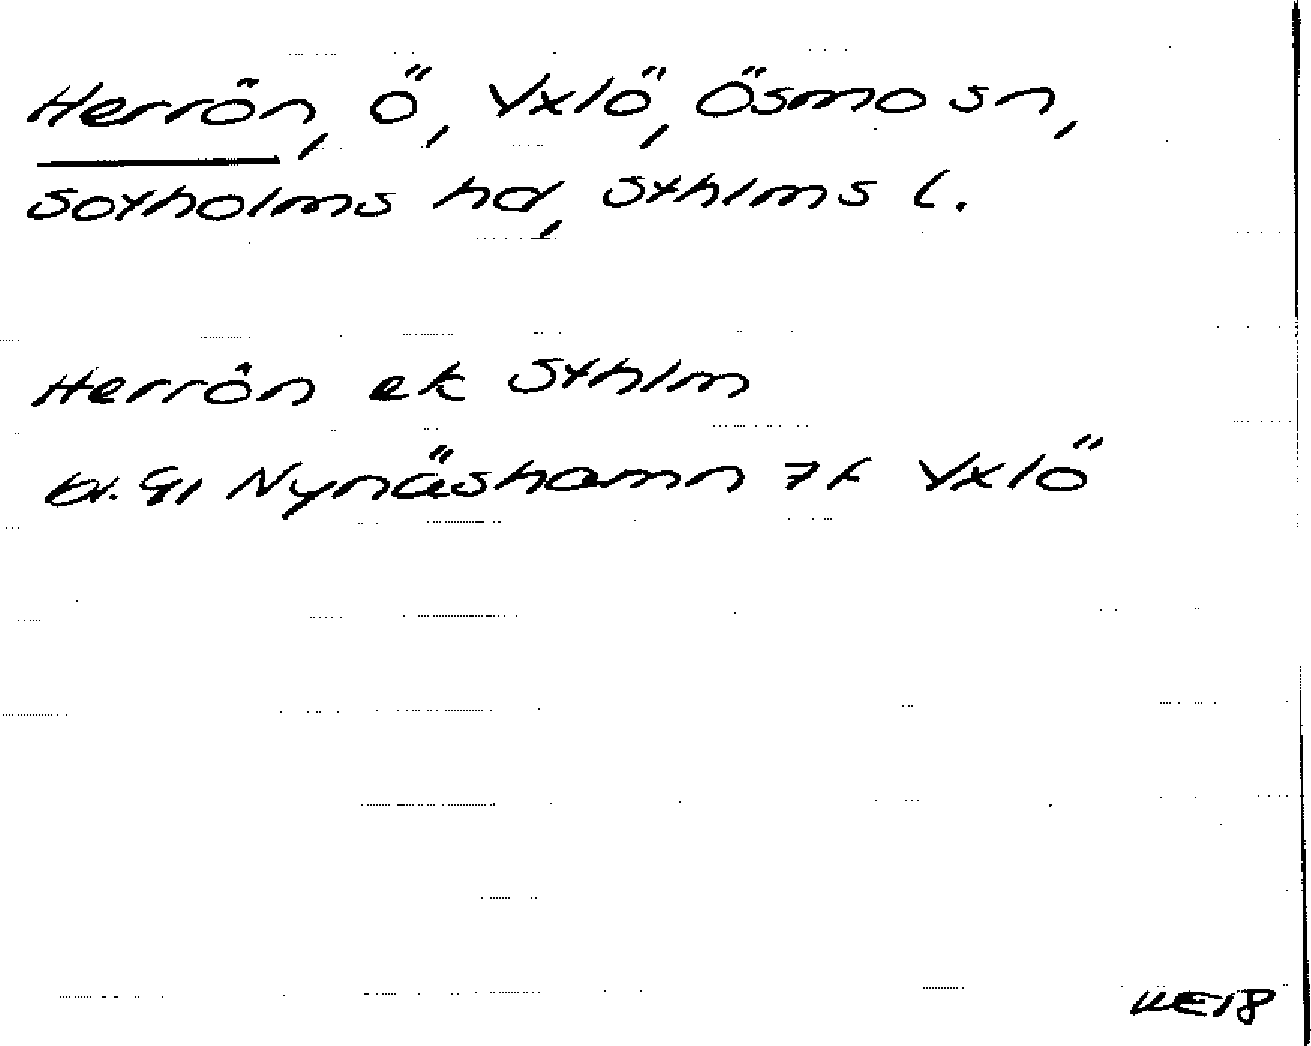 Herrön, ö, Yxlö, Ösmo sn,
Sotholms hd, Sthlms l.
Herrön ek Sthlm
bl. 91 Nynäshamn 7f Yxlö